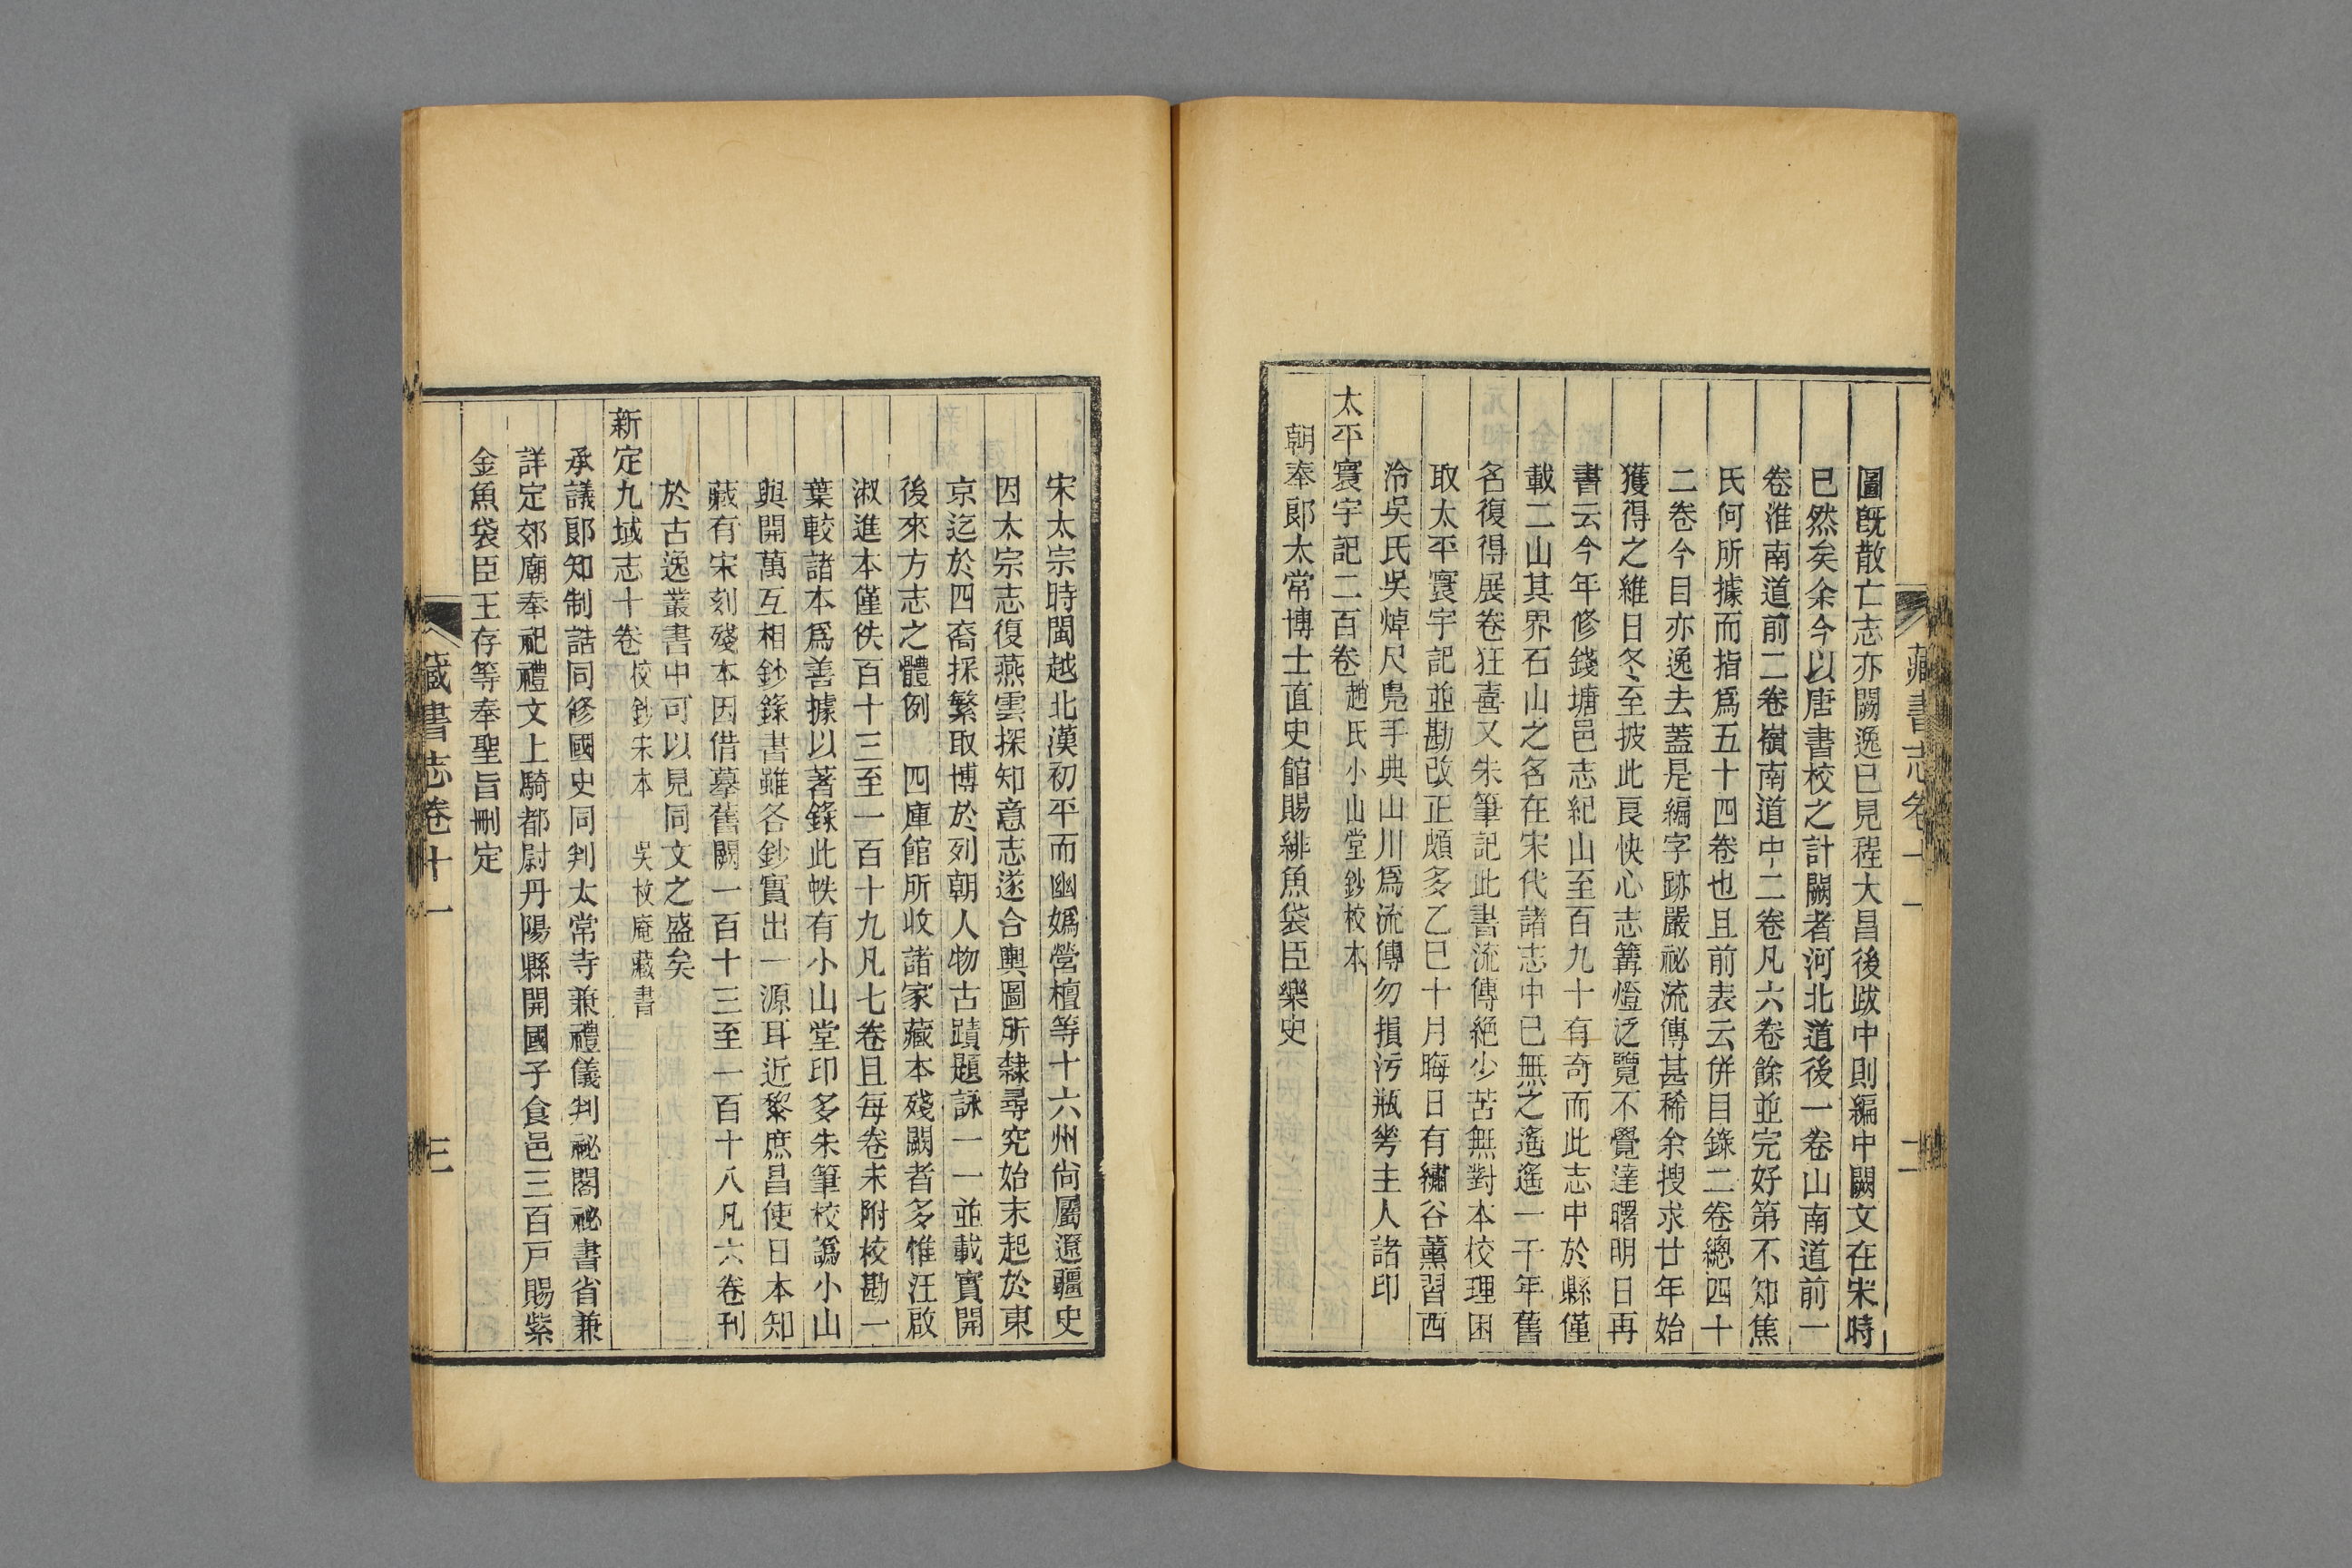 藏書志卷十一
二
圖旣散亡志亦闕逸已見程大昌後跋中則編中闕文在宋時
已然矣余今以唐書校之計闕者河北道後一卷山南道前一
卷淮南道前二卷嶺南道中二卷凡六卷餘並完好第不知焦
氏何所據而指爲五十四卷也且前表云併目錄二卷總四十
二卷今目亦逸去蓋是編字跡嚴祕流傳甚稀余搜求廿年始
獲得之維日冬至披此良快心志篝燈泛覽不覺達曙明日再
書云今年修錢塘邑志紀山至百九十有奇而此志中於縣僅
載二山其界石山之名在宋代諸志中已無之遙遙一千年舊
名復得展卷狂喜又朱筆記此書流傳絕少苦無對本校理因
取太平寰宇記並勘改正頗多乙巳十月晦日有繡谷薰習西
泠吳氏吳焯尺鳧手典山川爲流傳勿損污瓶花主人諸印
太平寰宇記二百卷 趙氏小山堂鈔校本
朝奉郎太常博士直史館賜緋魚袋臣樂史
宋太宗時閩越北漢初平而幽嬀營檀等十六州尙屬遼疆史
因太宗志復燕雲探知意志遂合輿圖所隸尋究始末起於東
京迄於四裔採繁取博於列朝人物古蹟題詠一一並載實開
後來方志之體例　四庫館所收諸家藏本殘闕者多惟汪啟
淑進本僅佚百十三至一百十九凡七卷且每卷末附校勘一
葉較諸本爲善據以著錄此帙有小山堂印多朱筆校譌小山
與開萬互相鈔錄書雖各鈔實出一源耳近黎庶昌使日本知
藏有宋刻殘本因借摹舊闕一百十三至一百十八凡六卷刊
於古逸叢書中可以見同文之盛矣
新定九域志十卷 校鈔宋本 吳枚庵藏書
承議郎知制誥同修國史同判太常寺兼禮儀判祕閣祕書省兼
詳定郊廟奉祀禮文上騎都尉丹陽縣開國子食邑三百戶賜紫
金魚袋臣王存等奉聖旨刪定
藏書志卷十一
三